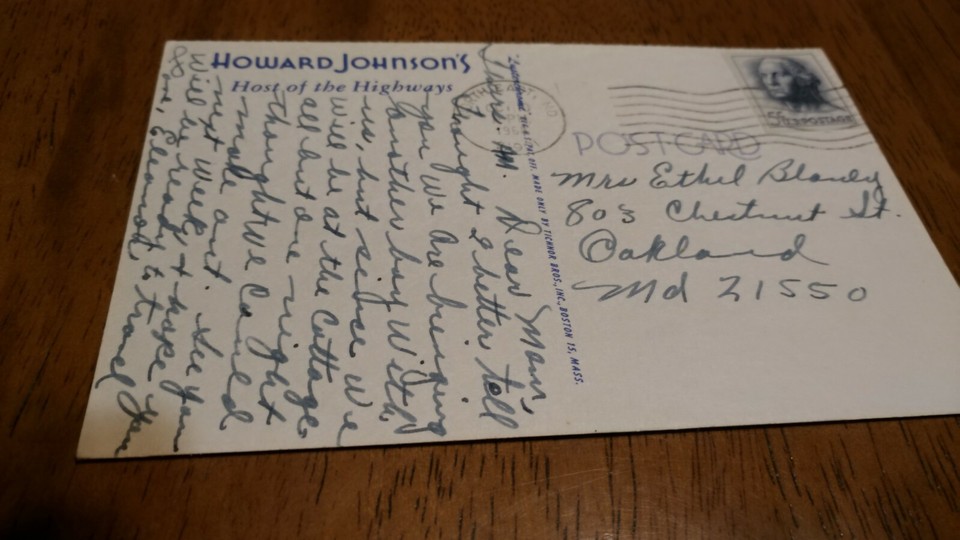 HOWARD JOHNSON'S
Host of the Highways
Thurs. AM. Dear Mom,
Thought I better tell
you We are bringing
another boy With
us, but We
will be at the Cottage
all but one night
thought We Could
next Week See you
Will be ready + hope you
Eleanor to travel
MADE ONLY BY TICHNOR BROS., INC., BOSTON 15, MASS.
POST CARD
5¢ U.S. POSTAGE
Mrs Ethel Blandy
803 Chestnut St.
Oakland
Md 21550